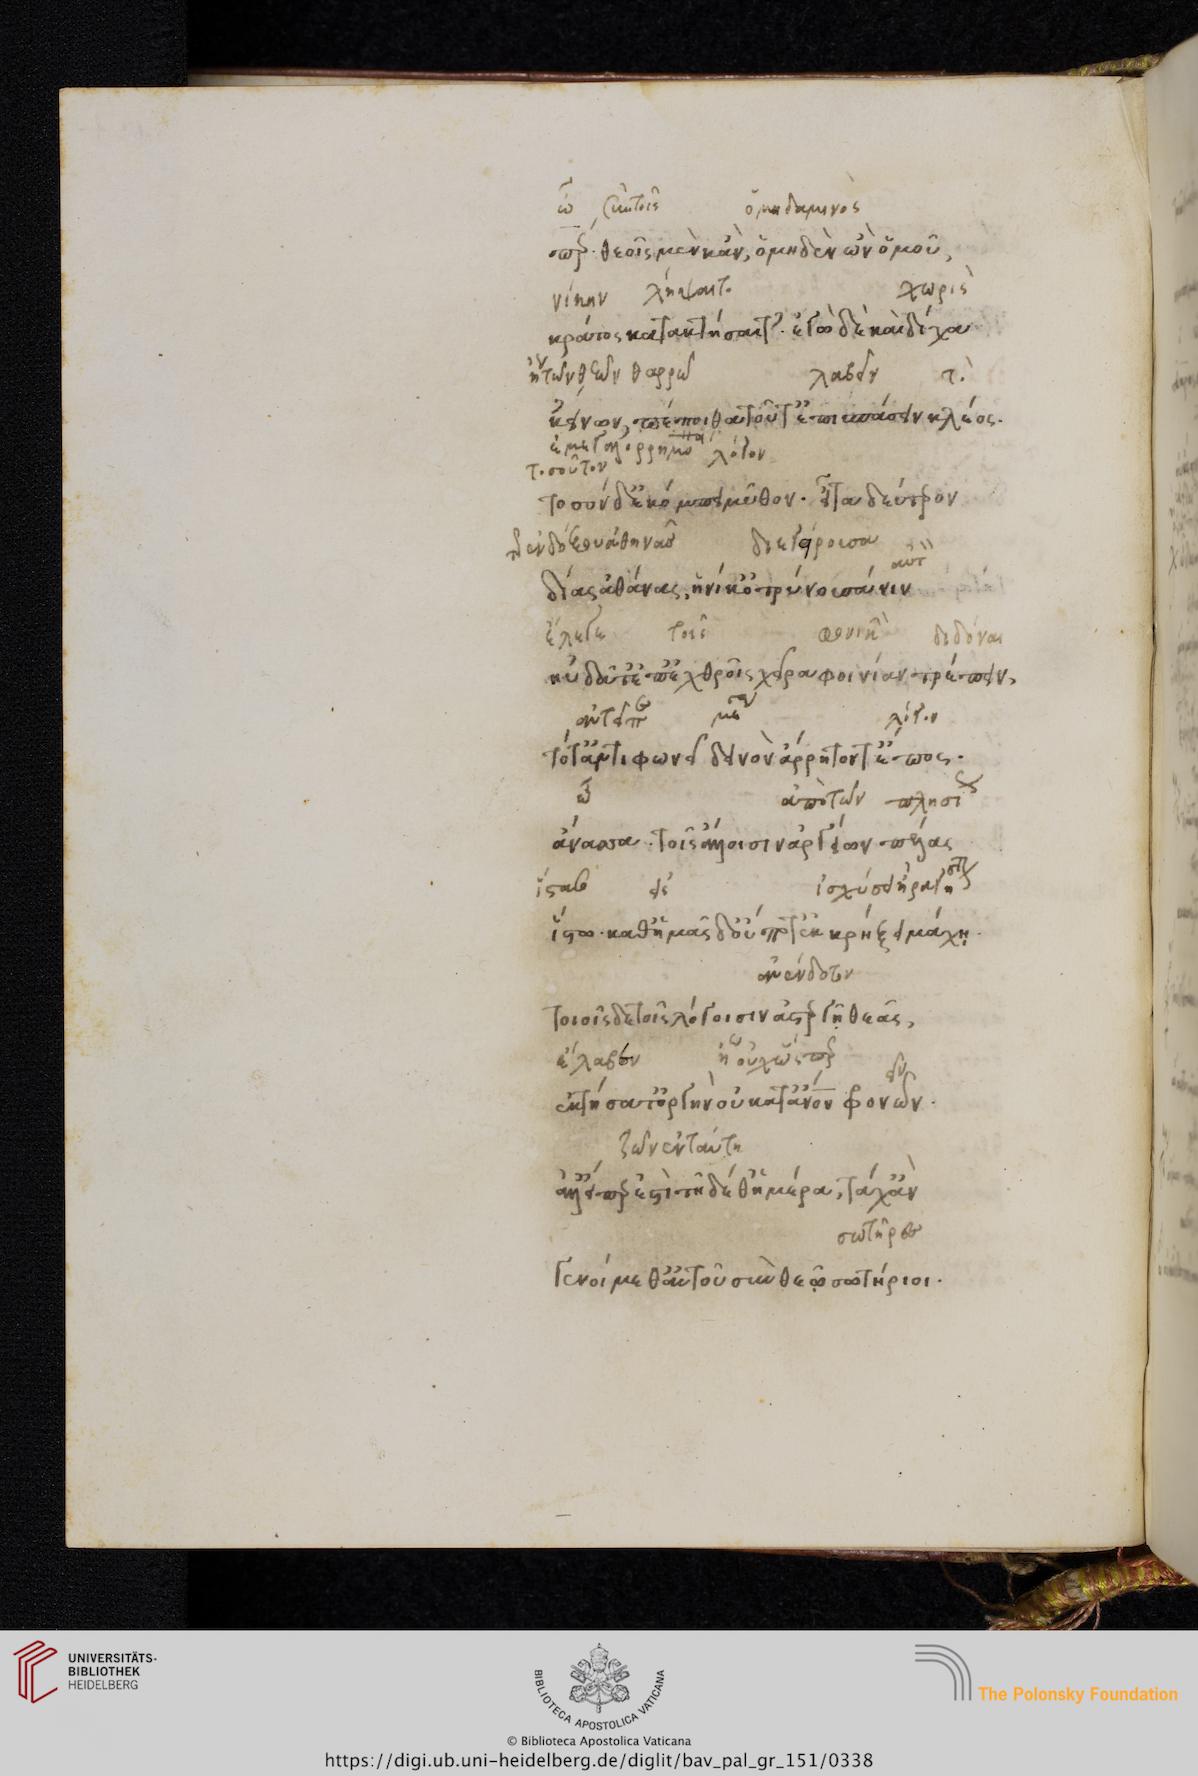 ὦ σὺν τοῖς ὁ μηδαμινὸς
πάτερ· θεοῖς μὲν κἂν, ὁ μηδὲν ὢν ὁμοῦ,
νίκην λήψαιτο χωρὶς
κράτος κατακτήσαιτ᾽· ἐγὼ δὲ καὶ δίχα
τῶν θεῶν θαρρῶ λαβεῖν τὸ
κείνων, πέποιθα τοῦτ᾽ ἐπισπάσειν κλέος.
λόγον
τοσοῦτον
τοσόνδ᾽ ἐκόμπει μῦθον· εἶτα δεύτερον
δίας ἀθάνας, ἡνίκ᾽ ὀτρύνουσά νιν
ἔλεγε τοῖς φονικὴν διδόναι
ηὐδᾶτ᾽ ἐπ᾽ ἐχθροῖς χεῖρα φοινίαν τρέπειν,
λόγον
τότ᾽ ἀντιφωνεῖ δεινὸν ἄρρητόν τ᾽ ἔπος·
ὦ ἀπὸ τῶν πλησίον
ἄνασσα· τοῖς ἄλλοισιν ἀργείων πέλας
ἵστω· καθ᾽ ἡμᾶς δ᾽ οὔποτ᾽ ἐκρήξει μάχη·
ἀνένδοτον
τοιοῖσδε τοῖς λόγοισιν ἀστεργῆ θεᾶς,
ἔλαβεν
ἐκτήσατ᾽ ὀργὴν οὐ κατ᾽ ἄνον φρονῶν·
ζῶν ἐν ταύτη
ἀλλ᾽ εἴπερ ἐστὶ τῆδέ θ᾽ ἡμέρα, τάχ᾽ ἂν
σωτῆρες
γενοίμεθ᾽ αὐτοῦ σὺν θεῷ σωτήριοι·
UNIVERSITÄTS-
BIBLIOTHEK
HEIDELBERG
BIBLIOTECA APOSTOLICA VATICANA
The Polonsky Foundation
© Biblioteca Apostolica Vaticana
https://digi.ub.uni-heidelberg.de/diglit/bav_pal_gr_151/0338